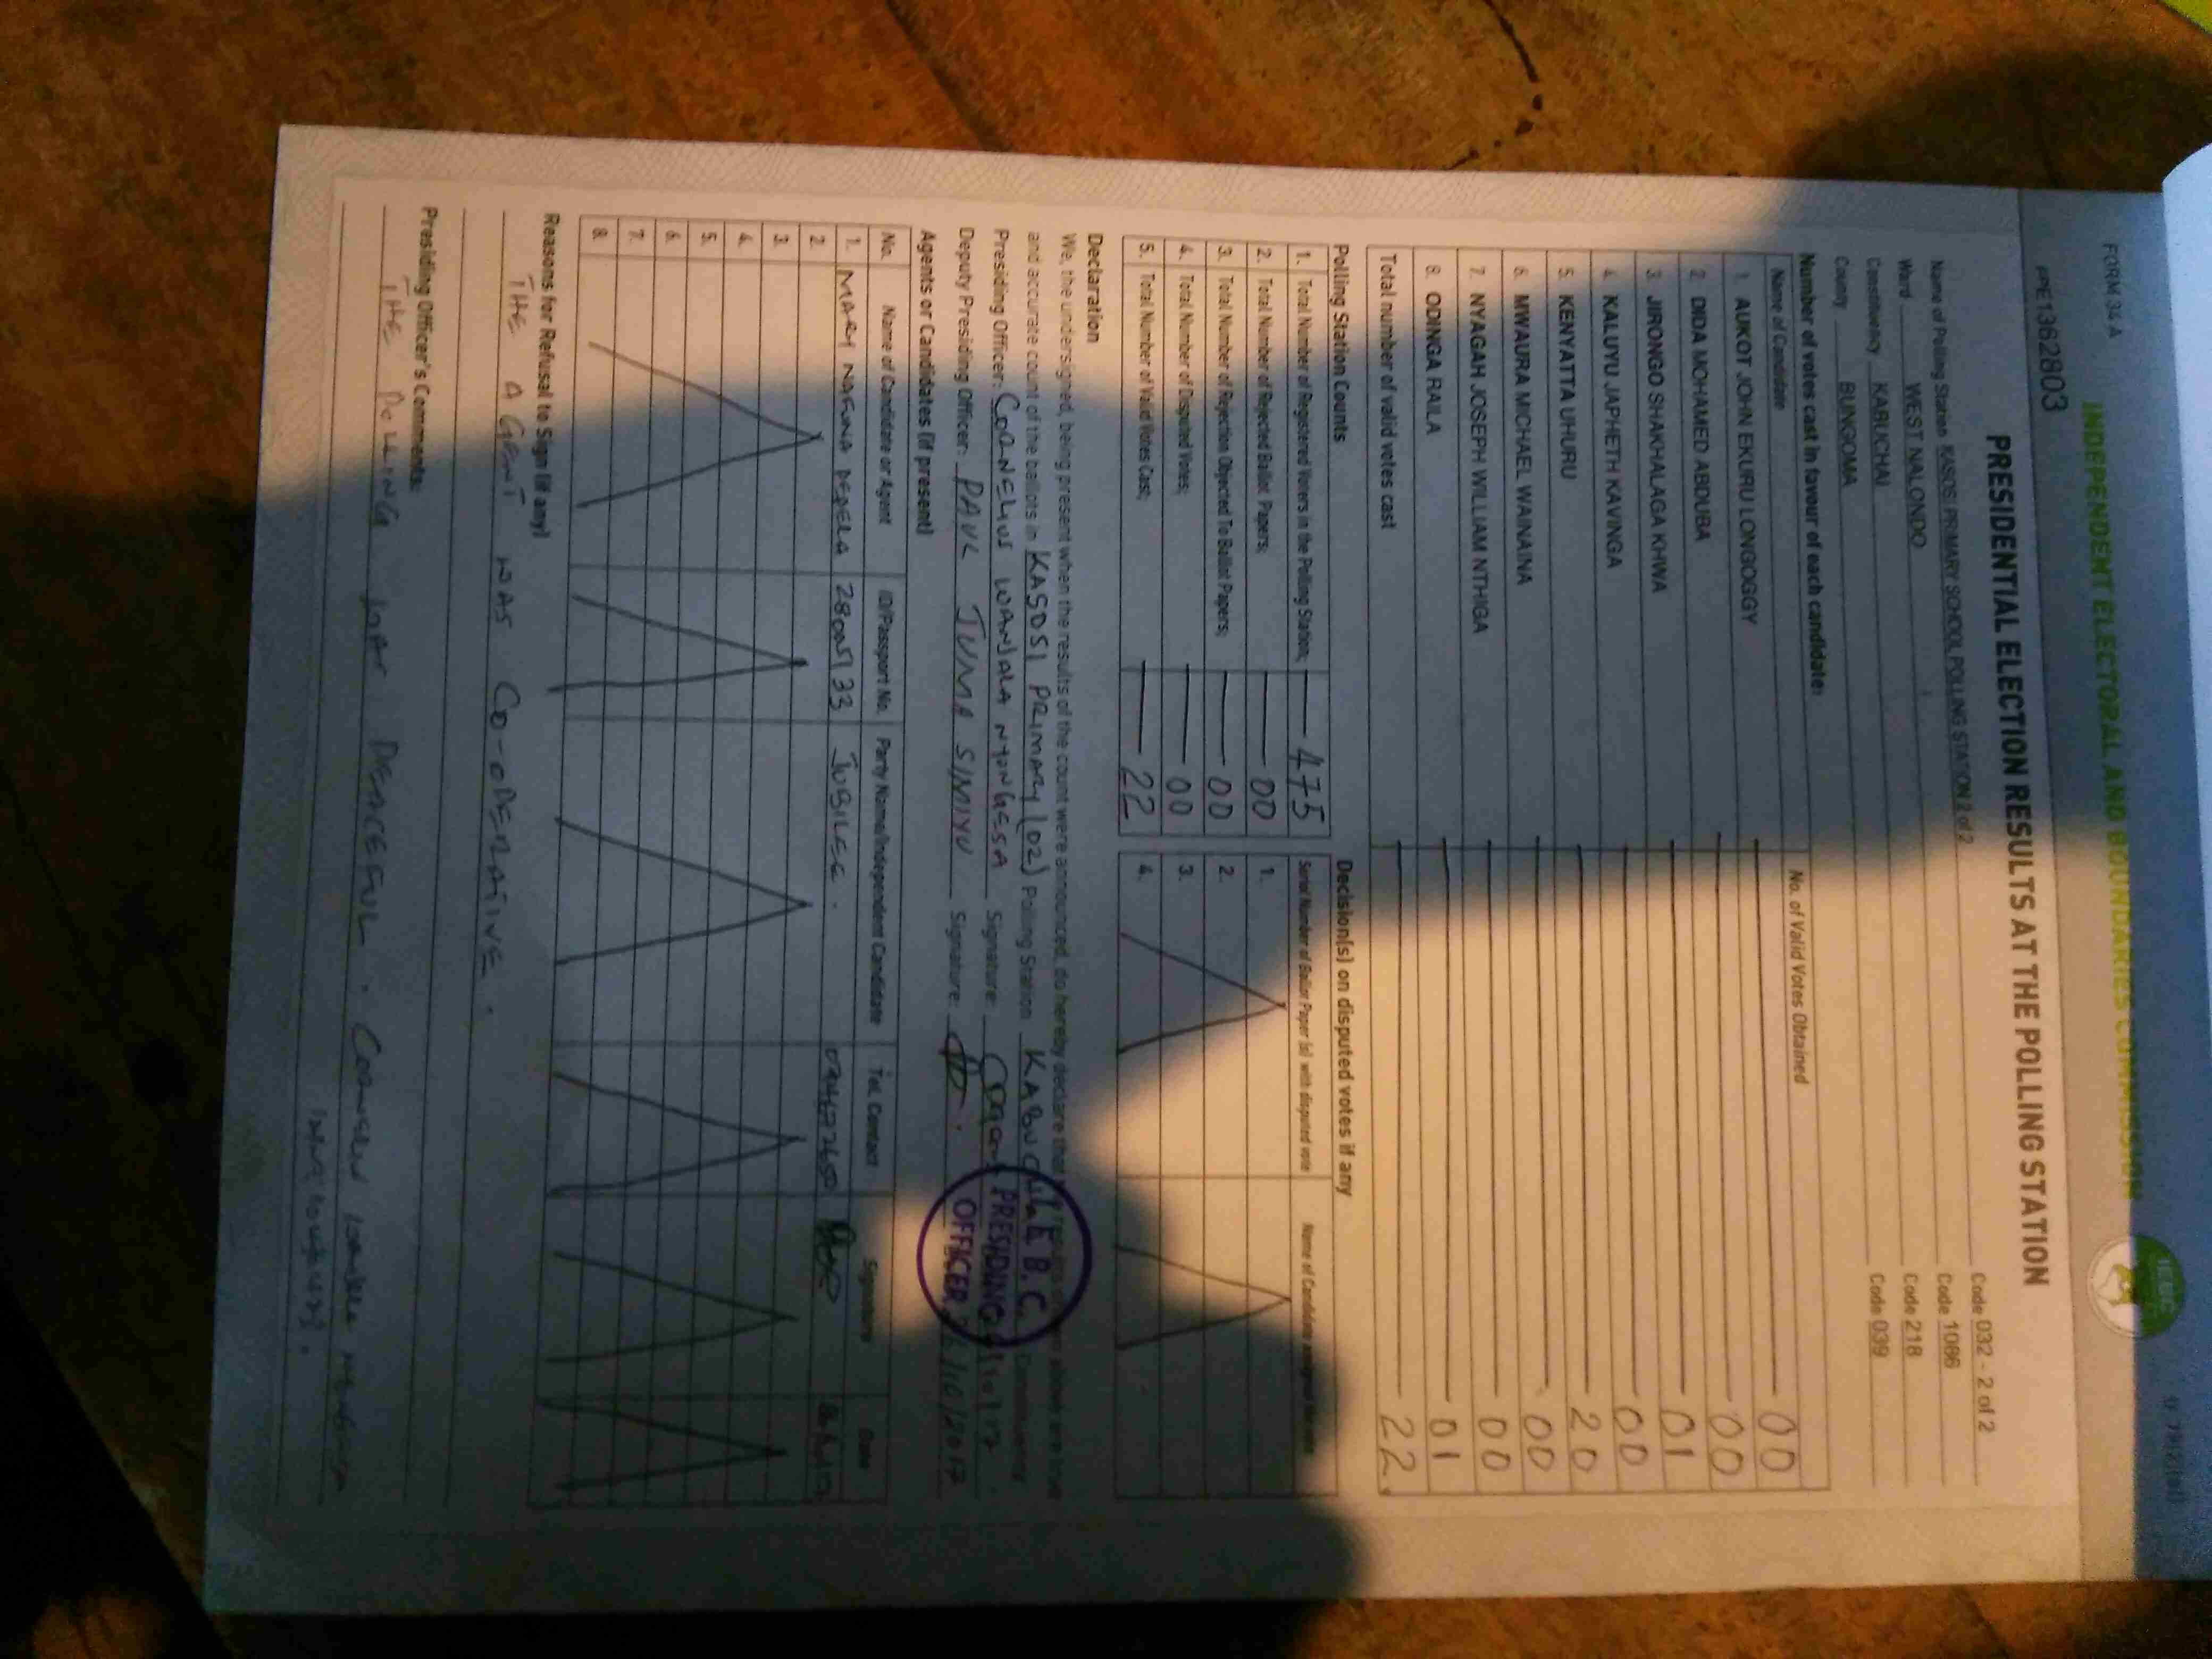 FORM 34 A
INDEPENDENT ELECTORAL AND BOUNDARIES COMMISSION
IEBC
PE1362803
PRESIDENTIAL ELECTION RESULTS AT THE POLLING STATION
Name of Polling Station KASOSI PRIMARY SCHOOL POLLING STATION 2 of 2 Code 032 - 2 of 2
Ward WEST NALONDO Code 1086
Constituency KABUCHAI Code 218
County BUNGOMA Code 039
Number of votes cast in favour of each candidate:
Name of Candidate No. of Valid Votes Obtained
1. AUKOT JOHN EKURU LONGOGGY 00
2. DIDA MOHAMED ABDUBA 00
3. JIRONGO SHAKHALAGA KHWA 01
4. KALUYU JAPHETH KAVINGA 00
5. KENYATTA UHURU 20
6. MWAURA MICHAEL WAINAINA 00
7. NYAGAH JOSEPH WILLIAM NTHIGA 00
8. ODINGA RAILA 01
Total number of valid votes cast 22
Polling Station Counts
1. Total Number of Registered Voters in the Polling Station; 475
2. Total Number of Rejected Ballot Papers; 00
3. Total Number of Rejection Objected To Ballot Papers; 00
4. Total Number of Disputed Votes; 00
5. Total Number of Valid Votes Cast; 22
Decision(s) on disputed votes if any
Serial Number of Ballot Paper (s) with disputed vote Name of Candidate
1.
2.
3.
4.
Declaration
We, the undersigned, being present when the results of the count were announced, do hereby declare that the results shown above are true
and accurate count of the ballots in KASOSI PRIMARY (02) Polling Station KABUCHAI Constituency
Presiding Officer: CORNELIUS WANJALA NYONGESA Signature:
Deputy Presiding Officer: PAUL JUMA SIMIYU Signature: /10/2017
I.E.B.C. PRESIDING OFFICER
Agents or Candidates (if present)
No. Name of Candidate or Agent ID/Passport No. Party Name/Independent Candidate Tel. Contact Signature Date
1. MARY NAFUNA 28005133 JUBILEE.
2.
3.
4.
5.
6.
7.
8.
Reasons for Refusal to Sign (if any)
THE AGENT WAS CO-OPERATIVE.
Presiding Officer's Comments:
THE POLLING WAS PEACEFUL.